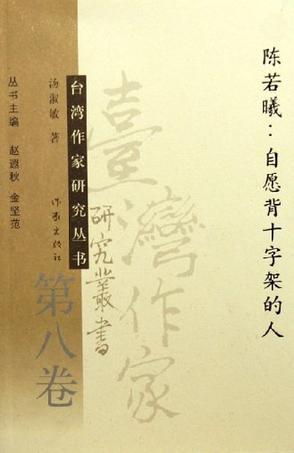 陈若曦：自愿背十字架的人
臺灣作家
研究叢書
台湾作家研究丛书
第八卷
汤淑敏 著
作家出版社
丛书主编 赵遐秋 金坚范